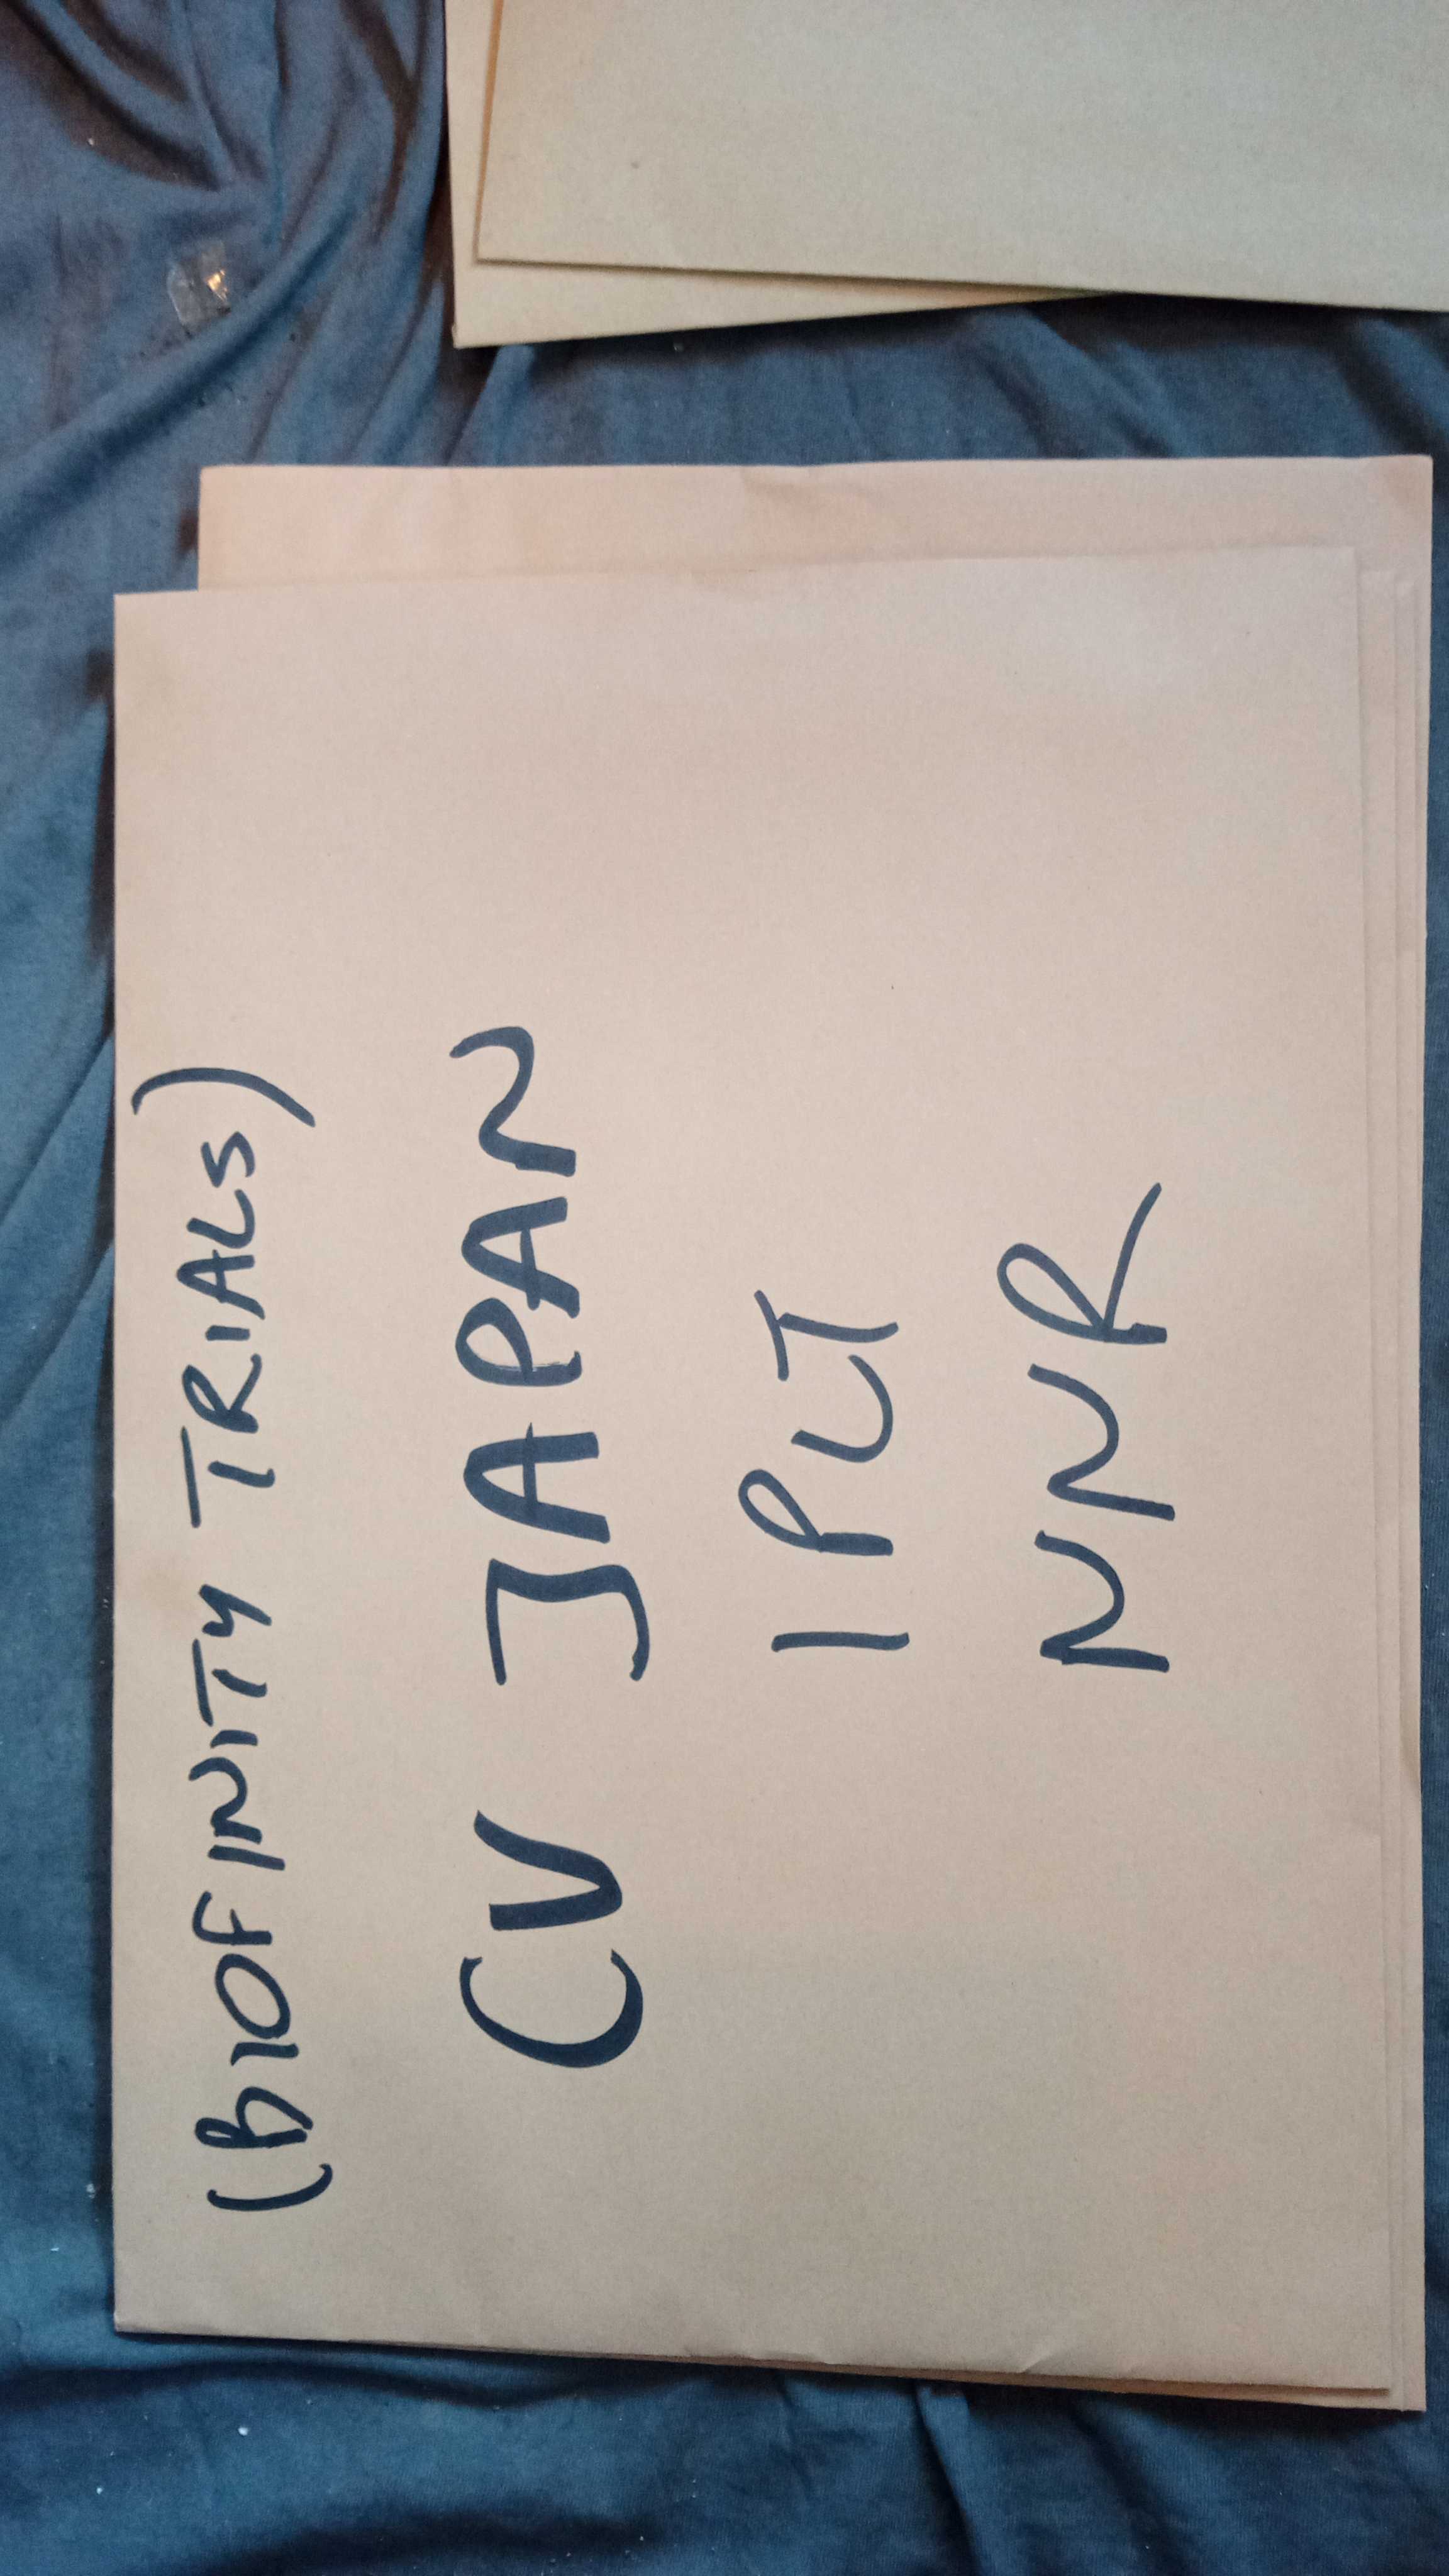 (BIOFINITY TRIALS)
CV JAPAN
1 PLT
NNR